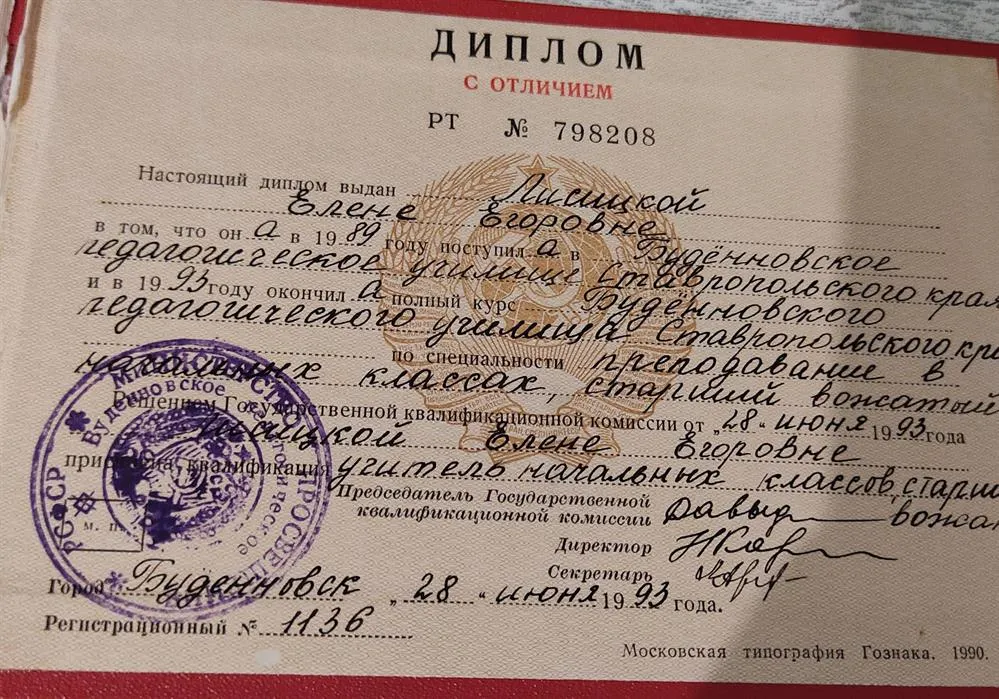 ДИПЛОМ
С ОТЛИЧИЕМ
РТ № 798208
Настоящий диплом выдан Лисицкой
Елене Егоровне
в том, что он а в 1989 году поступил а в Будённовское
педагогическое училище Ставропольского края
и в 1993 году окончил а полный курс Будённовского
педагогического училища Ставропольского кра
по специальности преподавание в
начальных классах, старший вожатый
Решением Государственной квалификационной комиссии от „28“ июня 1993 года
Лисицкой Елене Егоровне
присвоена квалификация учитель начальных классов, старш
вожат
Председатель Государственной
квалификационной комиссии
Директор
Секретарь
Город Будённовск „28“ июня 1993 года.
Регистрационный № 1136
Московская типография Гознака. 1990.
МИНИСТЕРСТВО ПРОСВЕЩЕНИЯ РСФСР
Буденновское педагогическое
м. п.